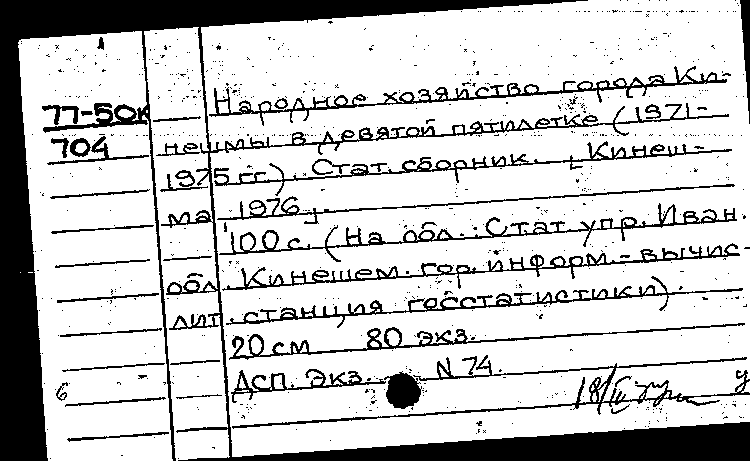 77-50к Народное хозяйство города Ки-
704 нешмы в девятой пятилетке (1971-
1975 гг.). Стат. сборник. [Кинеш-
ма 1976].
100 с. (На обл.: Стат упр. Иван.
обл. Кинешем. гор. информ.-вычис-
лит. станция госстатистики).
20 см 80 экз.
Дсп. Экз. N 74.
6 18/III у